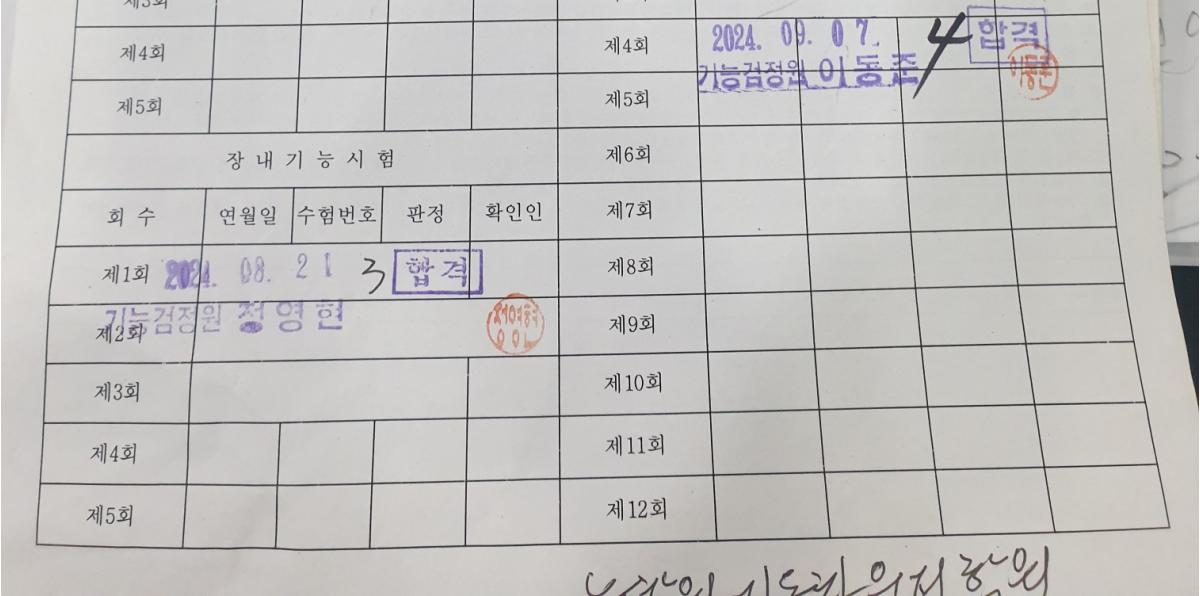 제3회
제4회
제5회
장내기능시험
회수 연월일 수험번호 판정 확인인
제1회 2024. 08. 21 3 합격
기능검정원 정영현
제2회
제3회
제4회
제5회
제4회 2024. 09. 07. 4 합격
기능검정원 이동준
제5회
제6회
제7회
제8회
제9회
제10회
제11회
제12회